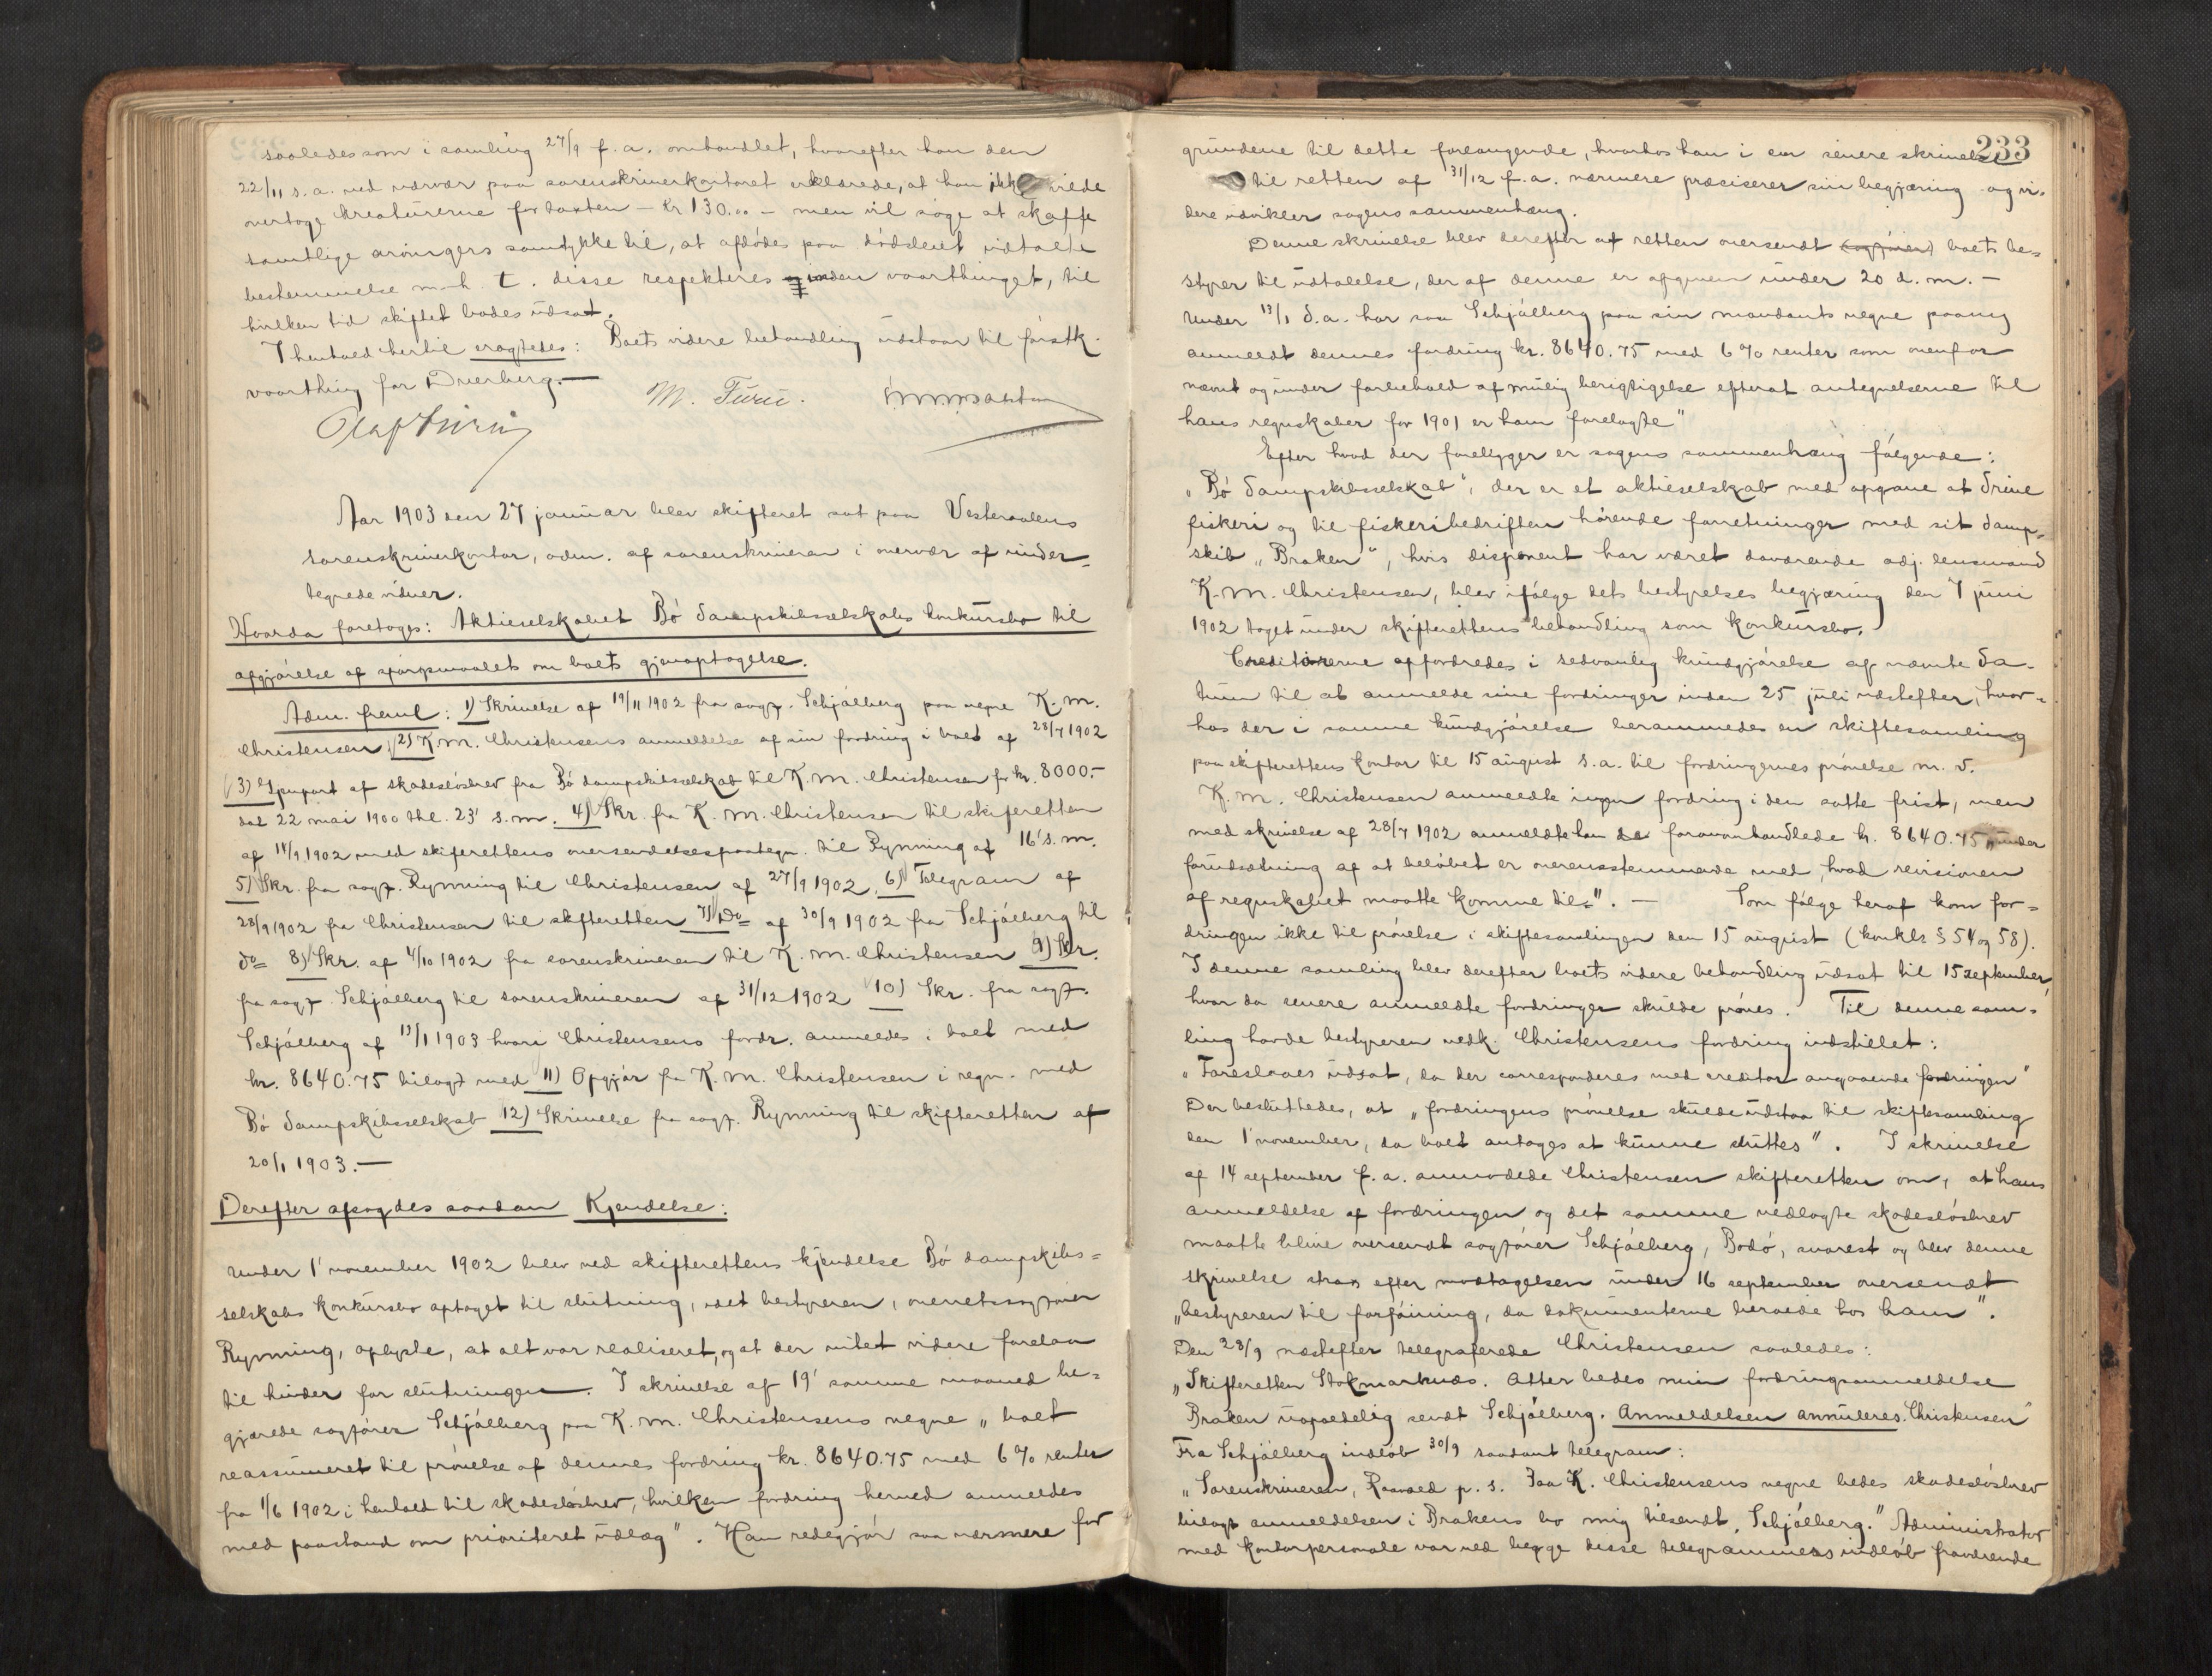 saaledes som i samling 27/9 f.a. omhandlet, hvorefter han den
22/11 s.a. ved nærvær paa sorenskriverkontoret erklærede, at han ikke vilde
overtage kreaturerne for taxten – kr 130.00 – men vil søge at skaffe
samtlige arvingers samtykke til, at afdødes paa dødsleiet udtalte
bestemmelse m.h.t. disse respekteres inden vaarthinget, til
hvilken tid skiftet bades udsat.
I henhold hertil eragtedes: Boets videre behandling udstaar til førstk.
vaarthing for Dverberg.—
M. Furu.
Aar 1903 den 27 januar blev skifteret sat paa Vesteraalens
sorenskriverkontor, adm. af sorenskriveren i overvær af under-
tegnede vidner.
Hvorda foretoges: Aktieselskabet Bø Dampskibsselskabs konkursbo til
afgjørelse af spørgsmaalet om boets gjenoptagelse.
Adm. freml: 1) Skrivelse af 19/11 1902 fra sagf. Schjølberg paa vegne K.M.
Christensen, 2) K.M. Christensens anmeldelse af sin fordring i boet af 28/7 1902
3) Gjenpart af skadesløsbrev fra Bø dampskibsselskab til K.M. Christensen for kr. 8000.-
dat 22 mai 1900 thl. 23' s.m. 4) Skr. fra K.M. Christensen til skifteretten
af 14/9 1902 med skifterettens oversendelsespaategn. til Rynning af 16' s.m.
5) Skr. fra sagf. Rynning til Christensen af 27/9 1902. 6) Telegram af
28/9 1902 fra Christensen til skifteretten 7) Do= af 30/9 1902 fra Schjølberg til
do= 8) Skr. af 4/10 1902 fra sorenskriveren til K.M. Christensen 9) Skr.
fra sagf. Schjølberg til sorenskriveren af 31/12 1902 10) Skr. fra sagf.
Schjølberg af 13/1 1903 hvori Christensens fordr. anmeldes i boet med
kr. 8640.75 bilagt med 11) Opgjør fra K.M. Christensen i regn. med
Bø Dampskibsselskab 12) Skrivelse fra sagf. Rynning til skifteretten af
20/1 1903.—
Derefter afsagdes saadan Kjendelse:
Under 1' november 1902 blev ved skifterettens kjendelse Bø dampskibs=
selskabs konkursbo optaget til slutning, idet bestyreren, overretssagfører
Rynning, oplyste, at alt var realiseret, og at der intet videre forelaa
til hinder for slutningen. I skrivelse af 19' samme maaned be=
gjærede sagfører Schjølberg paa K.M. Christensens vegne „boet
reassumeret til prøvelse af dennes fordring kr. 8640.75 med 6 % renter
fra 1/6 1902 i henhold til skadesløsbrev, hvilken fordring herved anmeldes
med paastand om prioriteret udlæg". Han redegjør saa nærmere for
233
grundene til dette forlangende, hvorhos han i en senere skrivelse
til retten af 31/12 f.a. nærmere præciserer sin begjæring og vi-
dere udvikler sagens sammenhæng.
Denne skrivelse blev derefter af retten oversendt boets be=
styrer til udtalelse, der af denne er afgiven under 20 d.m.—
Under 13/1 d.a. har saa Schjølberg paa sin mandants vegne paany
anmeldt dennes fordring kr. 8640.75 med 6 % renter som ovenfor
nævnt og under forbehold af mulig berigtigelse efterat antegnelserne til
hans regnskaber for 1901 er ham forelagte"
Efter hvad der foreligger er sagens sammenhæng følgende:
„Bø Dampskibsselskab", der er et aktieselskab med opgave at drive
fiskeri og til fiskeribedriften hørende forretninger med sit damp-
skib „Braken", hvis disponent har været daværende adj. lensmand
K.M. Christensen, blev ifølge dets bestyrelses begjæring den 7 juni
1902 taget under skifterettens behandling som konkursbo.
Creditorerne opfordredes i sedvanlig kundgjørelse af nævnte da-
tum til at anmelde sine fordringer inden 25 juli næstefter, hvor-
hos der i samme kundgjørelse berammedes en skiftesamling
paa skifterettens kontor til 15 august s.a. til fordringernes prøvelse m.v.
K.M. Christensen anmeldte ingen fordring i den satte frist, men
med skrivelse af 28/7 1902 anmeldte han de foranomhandlede kr. 8640.75 „under
forudsætning af at beløbet er overensstemmende med, hvad revisionen
af regnskabet maatte komme til". — Som følge heraf kom for=
dringen ikke til prøvelse i skiftesamlingen den 15 august (konkl. § 54 og 58).
I denne samling blev derefter boets videre behandling udsat til 15 september,
hvor da senere anmeldte fordringer skulde prøves. Til denne sam-
ling havde bestyreren vedk. Christensens fordring indstillet:
„Foreslaaes udsat, da der corresponderes med creditor angaaende fordringen"
Der besluttedes, at „fordringens prøvelse skulde udstaa til skiftesamling
den 1' november, da boet antages at kunne sluttes". I skrivelse
af 14 september f.a. anmodede Christensen skifteretten om, at hans
anmeldelse af fordringen og det samme vedlagte skadesløsbrev
maatte blive oversendt sagfører Schjølberg, Bodø, snarest og blev denne
skrivelse straks efter modtagelsen under 16 september oversendt
„bestyreren til forføining, da dokumenterne beroede hos ham".
Den 28/9 næstefter telegraferede Christensen saaledes:
„Skifteretten Stokmarknæs. Atter bedes min fordringsanmeldelse
Braken uopholdelig sendt Schjølberg. Anmeldelsen annuleres. Christensen"
Fra Schjølberg indløb 30/9 saadant telegram:
„Sorenskriveren, p.s. Paa K. Christensens vegne bedes skadesløsbrev
bilagt anmeldelsen i Brakens bo mig tilsendt. Schjølberg." Administrator
med kontorpersonale var ved begge disse telegrammers indløb fraværende